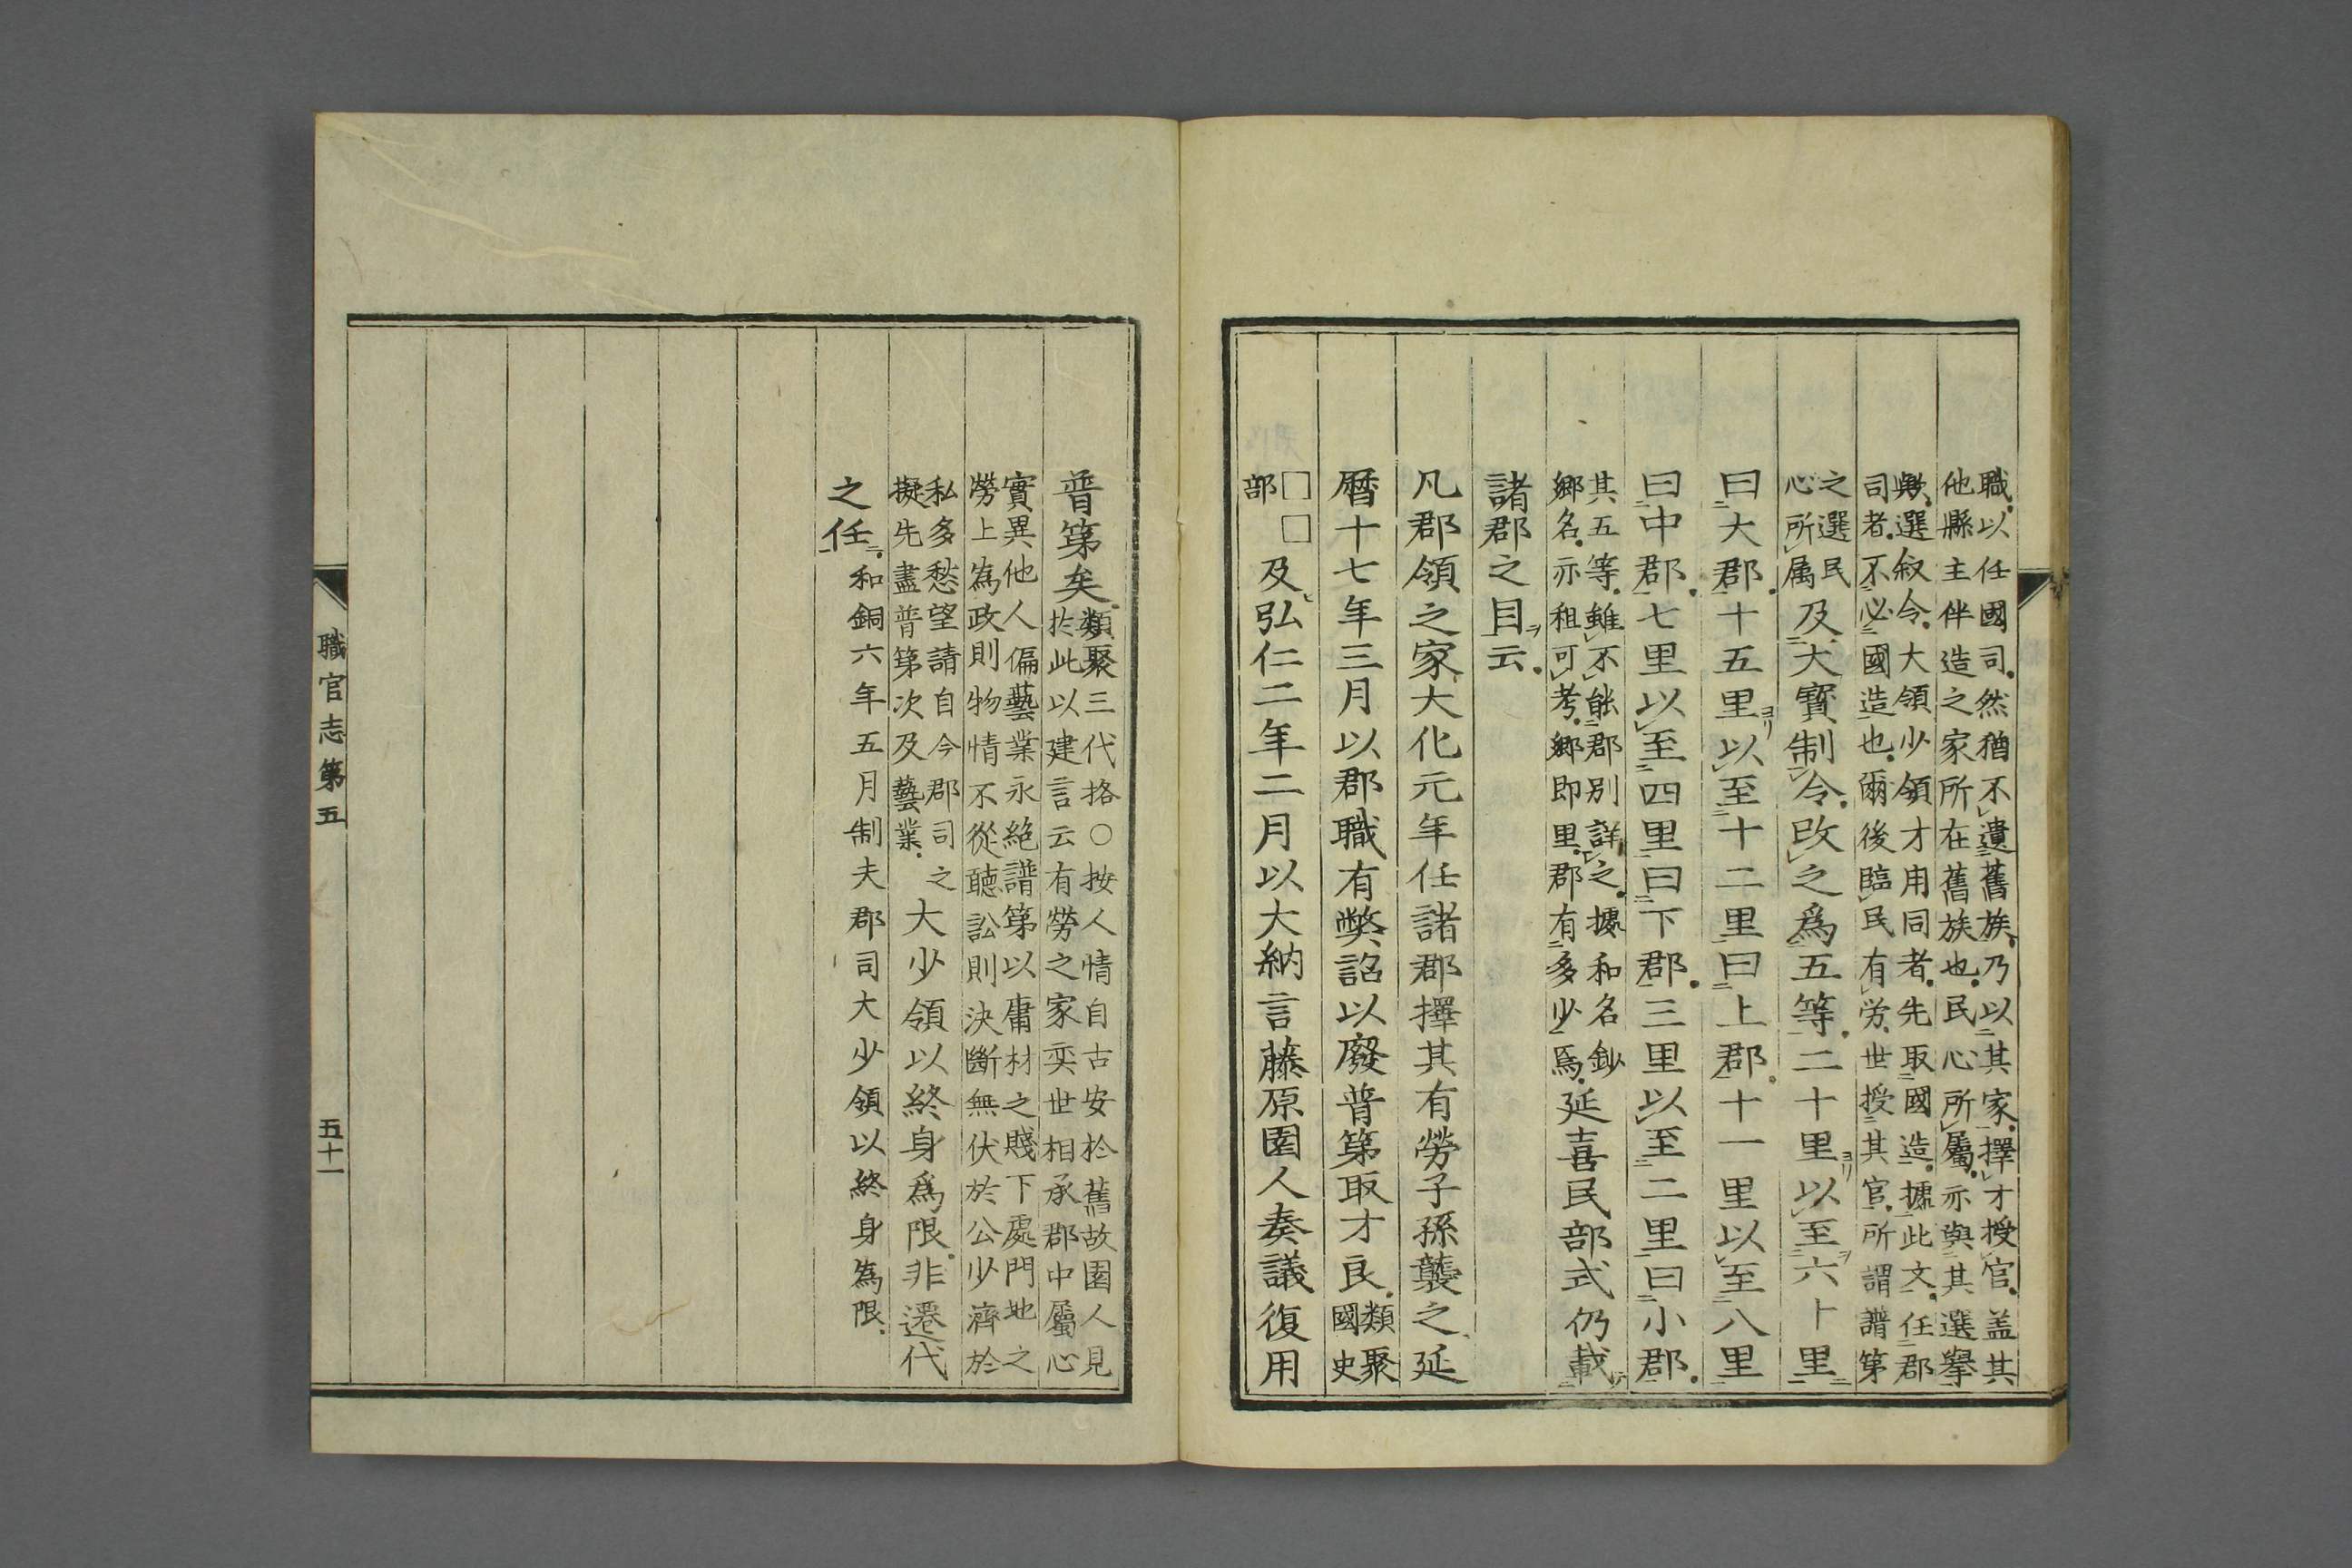 職以任國司然猶不遺舊族乃以其家擇才授官盖其
他縣主伴造之家所在舊族也民心所屬亦與其選擧
歟選叙令大領少領才用同者先取國造據此文任郡
司者不必國造也爾後臨民有労世授其官所謂譜第
之選民
心所属
及大寳制令改之爲五等二十里以至六十里
曰大郡十五里以至十二里曰上郡十一里以至八里
曰中郡七里以至四里曰下郡三里以至二里曰小郡
其五等雖不能郡別詳之據和名鈔
郷名亦租可考郷即里郡有多少焉
延喜民部式仍載
諸郡之目云
凡郡領之家大化元年任諸郡擇其有勞子孫襲之延
曆十七年三月以郡職有弊詔以廢普第取才良
類聚
國史
□□
部
及弘仁二年二月以大納言藤原園人奏議復用
普第矣
類聚三代挌○按人情自古安於舊故園人見
於此以建言云有勞之家奕世相承郡中屬心
實異他人偏藝業永絕譜第以庸材之賤下處門地之
勞上為政則物情不從聽訟則決斷無伏於公少濟於
私多愁望請自今郡司之
擬先盡普第次及藝業
大少領以終身爲限非遷代
之任
和銅六年五月制夫郡司大少領以終身為限
職官志第五
五十一